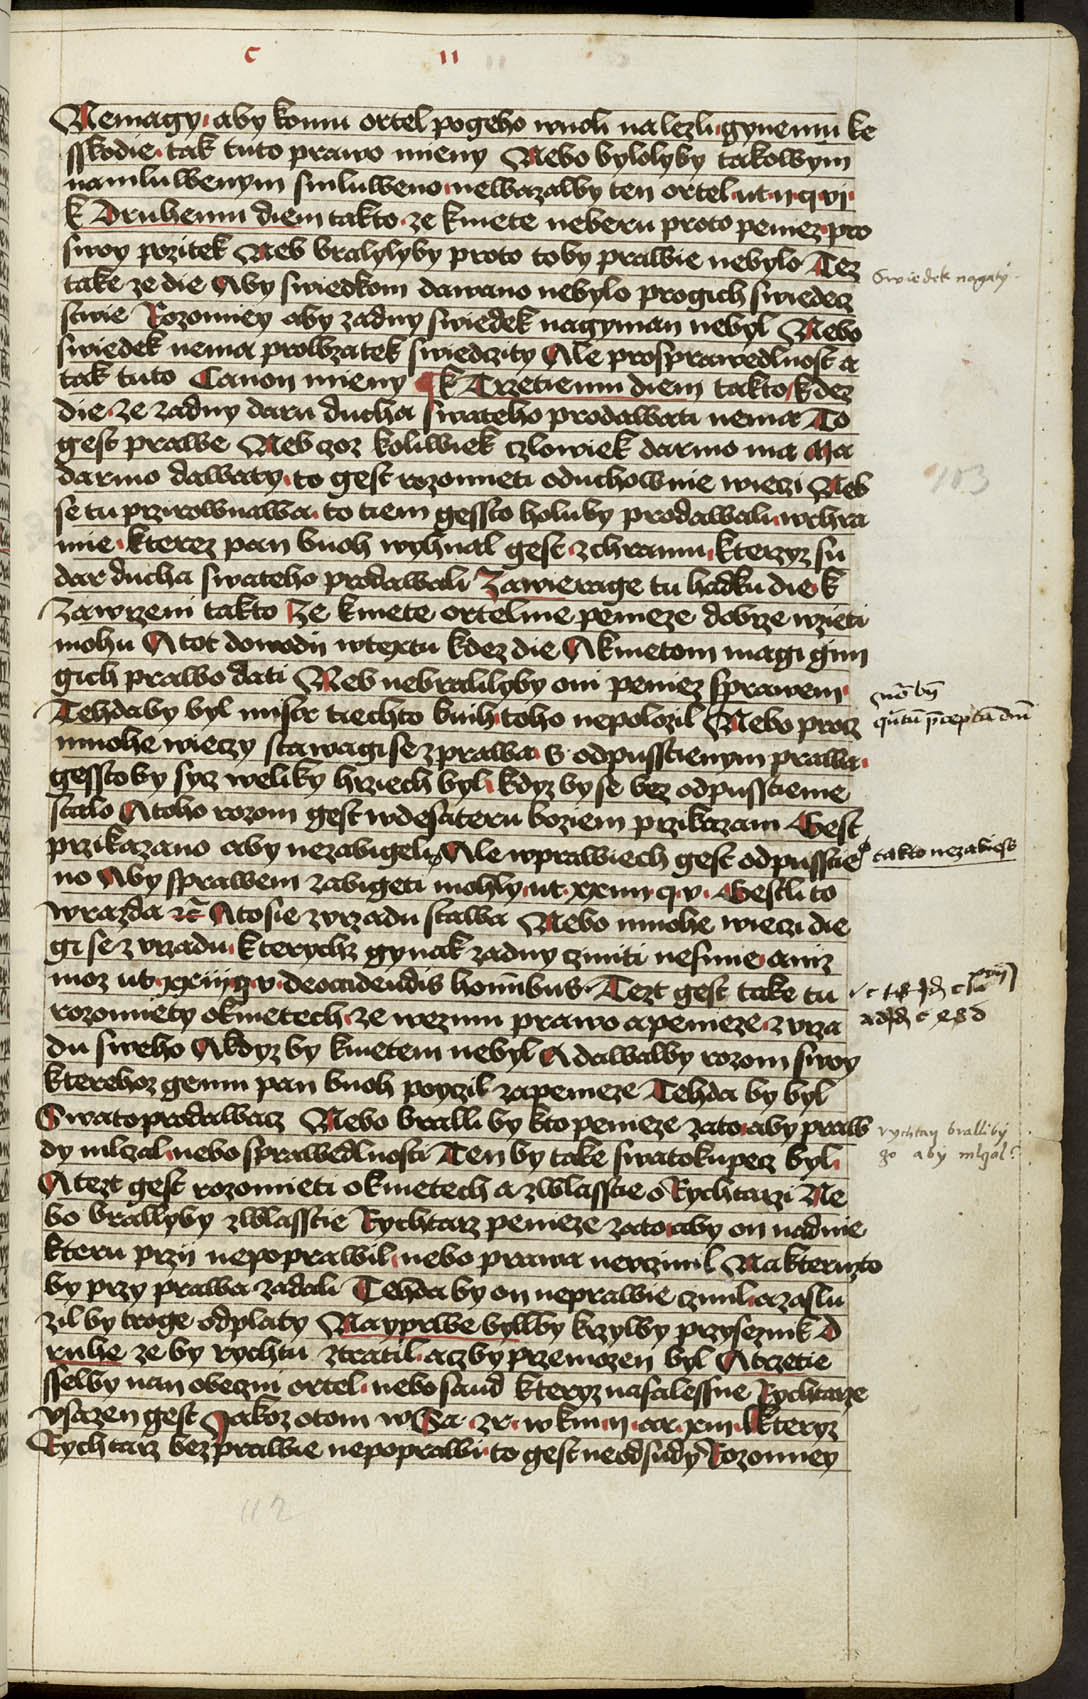 c ıı
Nemagy aby komu ortel pogeho wuoli nalezli gynemu ke
sskodie tak tuto prawo mieny Nebo bylolyby takowym
namluwenym smluweno newazalby ten ortel ut ij q vj
k Druhemu diem takto ze kmete neberu proto peniez pro
swoy pozitek Neb bralylyby proto toby prawie nebylo Tez
take ze die Aby swiedkom dawano nebylo progich swiedecz
stwie Rozomiey aby zadny swiedek nagyman nebyl Nebo
swiedek nema prowzatek swiedczity Ale prosprawedlnost a
tak tuto Canon mieny k Trzetiemu diem takto kdez
die ze zadny daru ducha swateho prodawati nema To
gest prawe Neb czoz koliwiek czlowiek darmo ma Ma
darmo dawaty to gest rozomieti oduchownie wieczi Neb
se tu przirownawa to tiem gessto holuby prodawali wchra
mie kterez pan buoh wyhnal gest zchramu kterzyz su
dar ducha swateho prodawali Zawierage tu hadku die k
zawrzeni takto Ze kmete ortelme penieze dobrze wzieti
mohu A tot dowodij wtextu kdez die A kmetom magi gim
gich prawo dati Neb nebralilyby oni peniez sprawem
Tehdaby byl mistr tiechto knih toho nepolozil Nebo procz
mnohe wieczy stawagi se zprawa s odpusstienym prawa
gesstoby sycz weliky hrziech byl kdyz by se bez odpusstienie
stalo A toho rozom gest wdesateru boziem przikazani Gest
przikazano aby nezabigeli Ale wprawiech gest odpusstie
no Aby sprawem zabigeti mohly ut xxiiij q v Gestli to
wrazda A tosie zvrzadu stawa Nebo mnohe wieczi die
gi se z vrzadu kterychz gynak zadny cziniti nesmie aniz
moz ut xxiij q v de occidendis hominibus Tezt gest take tu
rozomiety okmetech ze wezmu prawo apenieze z vrza
du sweho A kdyz by kmetem nebyl A dawalby rozom swoy
kterehoz gemu pan buoh poyczil zapenieze Tehda by byl
Swatoprodawacz Nebo bralli by kto penieze zato aby praw
dy mlczal nebo sprawedlnosti Ten by take swatokupecz byl
A tezt gest rozomieti o kmetech a zwlasstie o Rychtarzi Ne
bo brallyby zwlasstie Rychtarz penieze zato aby on nadnie
kteru przij nepoprawil nebo prawa nevczinil Nakteruzto
by przy prawa zadali Tehda by on neprawie czinil azaslu
zil by troge odplaty Nayprwe byllby krzywy przyseznik D
ruhe ze by rychtu ztratil aczby przemozen byl A trzetie
sselby nan obeczni ortel nebo saud kteryz nafalessne Rychtarze
vsazen gest Jakoz otom w Sa zr w kni ij ar xiij Kteryz
Rychtarz bezprawie nepoprawi to gest neodsudy Rozomiey
Swiedek nagaty
takto nezabiess
rychtarz bralliby
zo aby mlczal
103
112